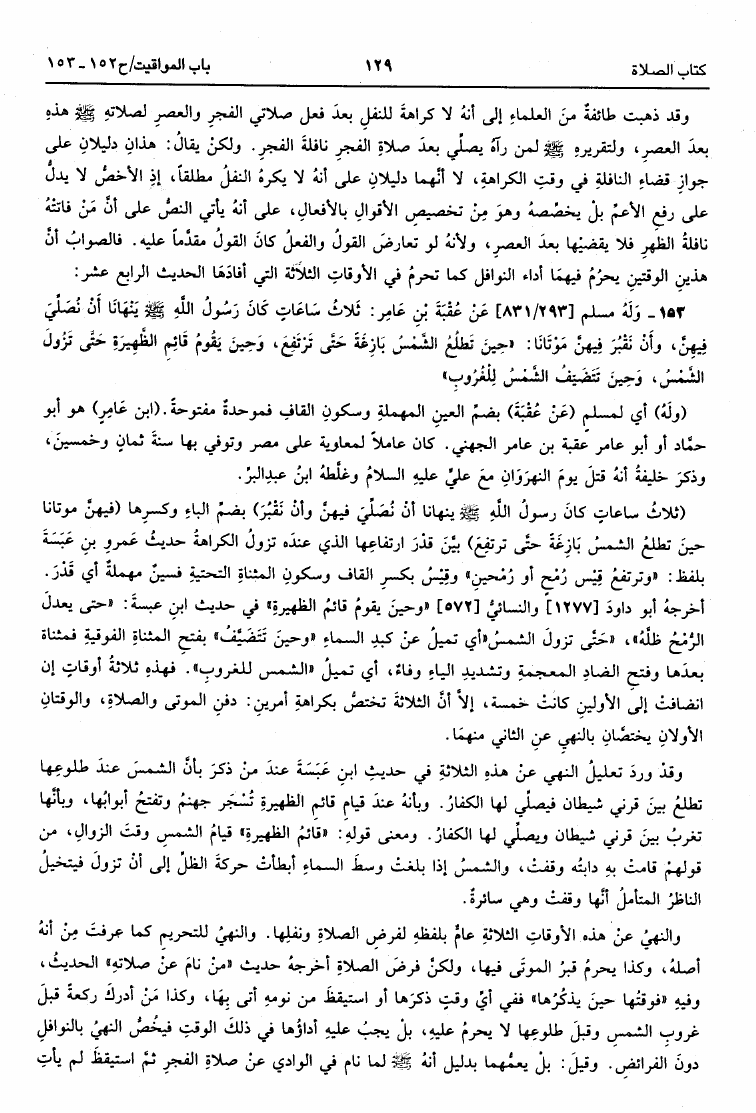 كتاب الصلاة ١٢٩ باب المواقيت/ح١٥٢ ـ ١٥٣
وقد ذهبت طائفةٌ منَ العلماءِ إلى أنهُ لا كراهةَ للنفلِ بعدَ فعل صلاتي الفجرِ والعصرِ لصلاتهِ ﷺ هذهِ
بعدَ العصرِ، ولتقريرهِ ﷺ لمن رآهُ يصلّي بعدَ صلاةِ الفجرِ نافلةَ الفجرِ. ولكنْ يقالُ: هذانِ دليلانِ على
جوازِ قضاءِ النافلةِ في وقتِ الكراهةِ، لا أنَّهما دليلانِ على أنهُ لا يكرهُ النفلُ مطلقاً، إذِ الأخصُّ لا يدلُّ
على رفعِ الأعمِّ بلْ يخصِّصهُ وهوَ مِنْ تخصيصِ الأقوالِ بالأفعالِ، على أنهُ يأتي النصُّ على أنَّ مَنْ فاتتْهُ
نافلةُ الظهرِ فلا يقضيْها بعدَ العصرِ، ولأنهُ لو تعارضَ القولُ والفعلُ كانَ القولُ مقدَّماً عليه. فالصوابُ أنَّ
هذينِ الوقتينِ يحرُمُ فيهمَا أداء النوافلِ كما تحرمُ في الأوقاتِ الثلاثةِ التي أفادَهَا الحديث الرابع عشر:
١٥٣ ـ وَلَهُ مسلم [٨٣١/٢٩٣] عَنْ عُقْبَةَ بْنِ عَامِرٍ: ثَلَاثُ سَاعَاتٍ كَانَ رَسُولُ اللَّهِ ﷺ يَنْهَانَا أَنْ نُصَلِّيَ
فِيهِنَّ، وأَنْ نَقْبُرَ فِيهِنَّ مَوْتَانَا: «حِينَ تَطْلُعُ الشَّمْسُ بَازِغَةً حَتَّى تَرْتَفِعَ، وَحِينَ يَقُومُ قَائِمِ الظَّهِيرَةِ حَتَّى تَزُولَ
الشَّمْسُ، وَحِينَ تَتَضَيَّفُ الشَّمْسُ لِلْغُرُوبِ»
(ولَهُ) أي لمسلمٍ (عَنْ عُقْبَةَ) بضمِّ العينِ المهملةِ وسكونِ القافِ فموحدةٌ مفتوحةٌ. (ابن عَامِرٍ) هو أبو
حمَّاد أو أبو عامر عقبة بن عامر الجهني. كان عاملاً لمعاوية على مصر وتوفي بها سنةَ ثمانٍ وخمسينَ،
وذكرَ خليفةُ أنهُ قتلَ يومَ النهرَوَانِ معَ عليٍّ عليهِ السلامُ وغلَّطهُ ابنُ عبدِالبرِّ.
(ثلاثُ ساعاتٍ كانَ رسولُ اللَّهِ ﷺ ينهانا أنْ نُصَلِّيَ فيهنَّ وأنْ نَقْبُرَ) بضمِّ الباءِ وكسرِها (فيهنَّ موتانا
حينَ تطلعُ الشمسُ بَازِغَةً حتَّى ترتفعَ) بيَّنَ قدْرَ ارتفاعِها الذي عندَه تزولُ الكراهةُ حديثُ عمرِو بنِ عَبَسَةَ
بلفظِ: «وترتفعَ قِيْسَ رُمْحٍ أو رُمْحينِ» وقِيْسُ بكسرِ القافِ وسكونِ المثناةِ التحتيةِ فسينٌ مهملةٌ أي قَدْرَ.
أخرجهُ أبو داودَ [١٢٧٧] والنسائيُّ [٥٧٢] «وحينَ يقومُ قائمُ الظهيرةِ» في حديثِ ابنِ عبسةَ: «حتى يعدلَ
الرُّمْحُ ظلَّهُ»، «حَتَّى تزولَ الشمسُ»أي تميلُ عنْ كبدِ السماءِ «وحينَ تَتَضَيَّفُ» بفتحِ المثناةِ الفوقيةِ فمثناة
بعدَها وفتحِ الضادِ المعجمةِ وتشديدِ الياءِ وفاءٌ، أي تميلُ «الشمسُ للغروبِ». فهذهِ ثلاثةُ أوقاتٍ إن
انضافتْ إلى الأولينِ كانتْ خمسة، إلاَّ أنَّ الثلاثةَ تختصُّ بكراهةِ أمرينِ: دفنِ الموتى والصلاةِ، والوقتانِ
الأولانِ يختصَّانِ بالنهيِ عنِ الثاني منهمَا.
وقدْ وردَ تعليلُ النهيِ عنْ هذهِ الثلاثةِ في حديثِ ابنِ عَبَسَةَ عندَ منْ ذكرَ بأنَّ الشمسَ عندَ طلوعِها
تطلعُ بينَ قرني شيطان فيصلِّي لها الكفارُ. وبأنهُ عندَ قيامِ قائمِ الظهيرةِ تُسْجَر جهنمُ وتفتحُ أبوابُها، وبأنَّها
تغربُ بينَ قرني شيطان ويصلِّي لها الكفارُ. ومعنى قولهِ: «قائمُ الظهيرةِ» قيامُ الشمسِ وقتَ الزوالِ، من
قولهمْ قامتْ بهِ دابتُه وقفتْ، والشمسُ إذا بلغتْ وسطَ السماءِ أبطأتْ حركةَ الظلِّ إلى أنْ تزولَ فيتخيلُ
الناظرُ المتأملُ أنَّها وقفتْ وهي سائرةٌ.
والنهيُ عنْ هذهِ الأوقاتِ الثلاثةِ عامٌّ بلفظهِ لفرضِ الصلاةِ ونفلِها. والنهيُ للتحريمِ كما عرفتَ مِنْ أنهُ
أصلهُ، وكذا يحرمُ قبرُ الموتَى فيها، ولكنْ فرضُ الصلاةِ أخرجهُ حديث «منْ نامَ عنْ صلاتهِ» الحديثُ،
وفيهِ «فوقتُها حينَ يذكُرُها» ففي أيِّ وقتٍ ذكرَها أو استيقظَ من نومهِ أتى بِهَا، وكذا مَنْ أدركَ ركعةً قبلَ
غروبِ الشمسِ وقبلَ طلوعِها لا يحرمُ عليهِ، بلْ يجبُ عليهِ أداؤُها في ذلكَ الوقتِ فيخُصُّ النهيُ بالنوافلِ
دونَ الفرائضِ. وقيلَ: بلْ يعمُّهما بدليلِ أنهُ ﷺ لما نام في الوادي عنْ صلاةِ الفجرِ ثمَّ استيقظَ لم يأتِ